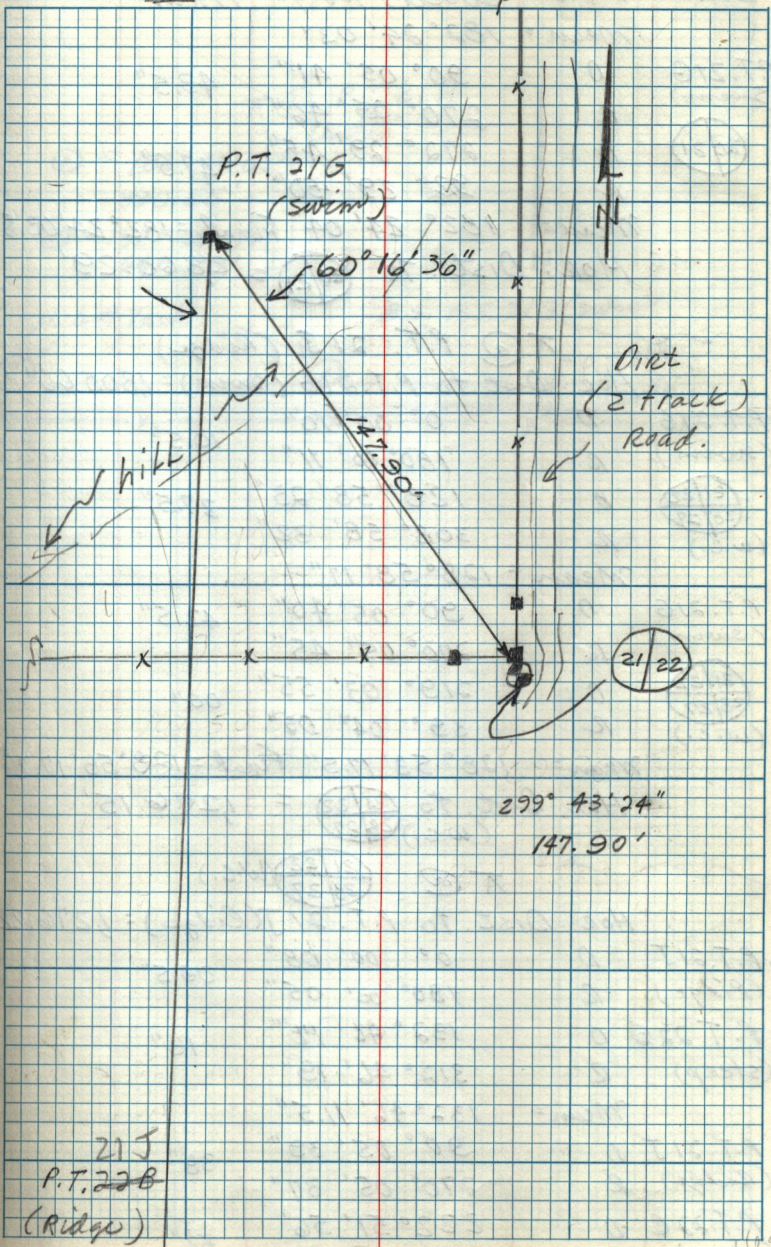 P.T. 21G
(swim)
60° 16' 36"
N
Dirt
(2 track)
Road.
147.90'
hill
21/22
299° 43' 24"
147.90'
21J
P.T. 22B
(Ridge)